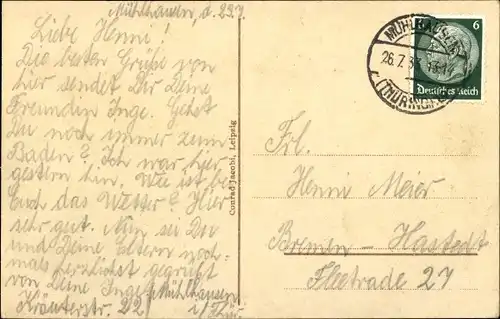 Mühlhausen, d. 25.7.
Liebe Henni!
Die besten Grüße von
hier sendet Dir Deine
Freundin Inge. Gehst
Du noch immer zum
Baden? Ich war hier
gestern hin. Wie ist bei
Euch das Wetter? Hier
sehr gut. Nun sei Du
und Deine Eltern noch-
mals herzlichst gegrüßt
von Deine Inge
Kräuterstr. 22
Mühlhausen
i/Thür.
Conrad Jacobi, Leipzig
MÜHLHAUSEN
26.7.
(THÜRINGEN)
6
Deutsches Reich
Frl.
Henni Meier
Bremen – Hastedt
Fleetrade 27